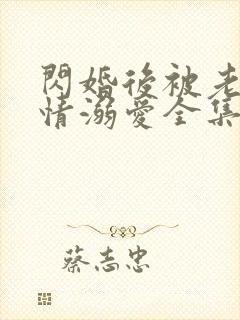 閃婚後被老
情溺愛全集
蔡志忠